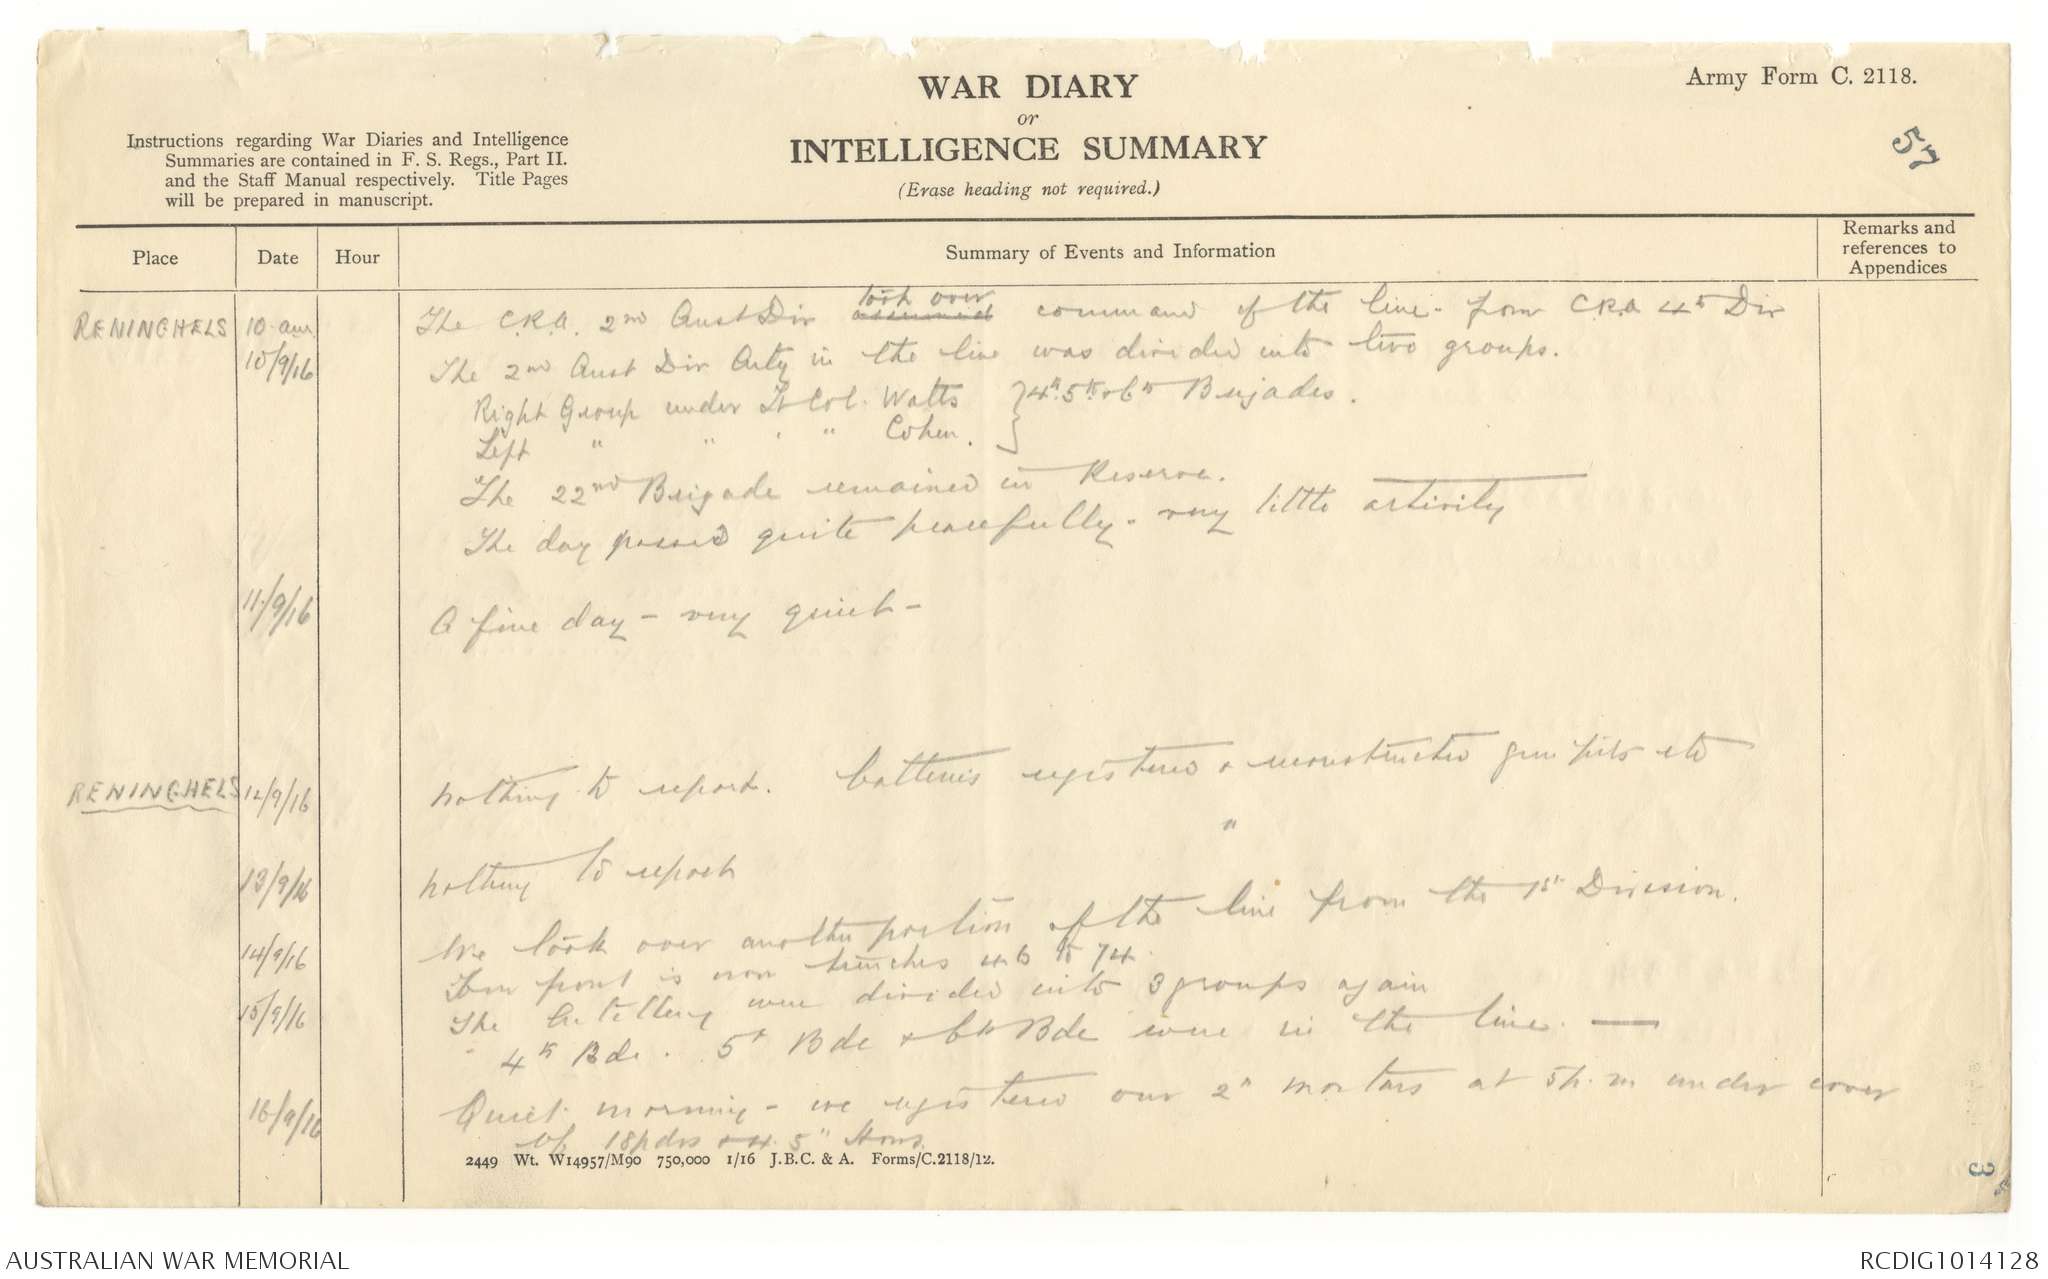 Army Form C. 2118.
WAR DIARY
or
INTELLIGENCE SUMMARY
(Erase heading not required.)
Instructions regarding War Diaries and Intelligence
Summaries are contained in F. S. Regs., Part II.
and the Staff Manual respectively. Title Pages
will be prepared in manuscript.
57
Place Date Hour Summary of Events and Information Remarks and references to Appendices
RENINGHELS 10 am The C.R.A. 2nd Aust Div assumed took over command of the line - from C.R.A 4th Div
10/9/16 The 2nd Aust Div Arty in the line was divided into two groups.
Right Group under Lt Col. Watts } 4th 5th & 6th Brigades.
Left " " " " Cohen. }
The 22nd Brigade remained in Reserve.
The day passed quite peacefully - very little activity
11/9/16 A fine day - very quiet -
RENINGHELS 12/9/16 Nothing to report. Batteries registered & reconstructed gun pits etc
"
13/9/16 Nothing to report
14/9/16 We took over another portion of the line from the 1st Division.
front is now trenches to 74.
15/9/16 The Artillery were divided into 3 groups again
4th Bde. 5th Bde & 6th Bde were in the line. —
16/9/16 Quiet morning - we registered our 2" mortars at 5 p.m under cover
of 18pdrs & 4.5" Hows.
2449 Wt. W14957/M90 750,000 1/16 J.B.C. & A. Forms/C.2118/12.
3
AUSTRALIAN WAR MEMORIAL
RCDIG1014128